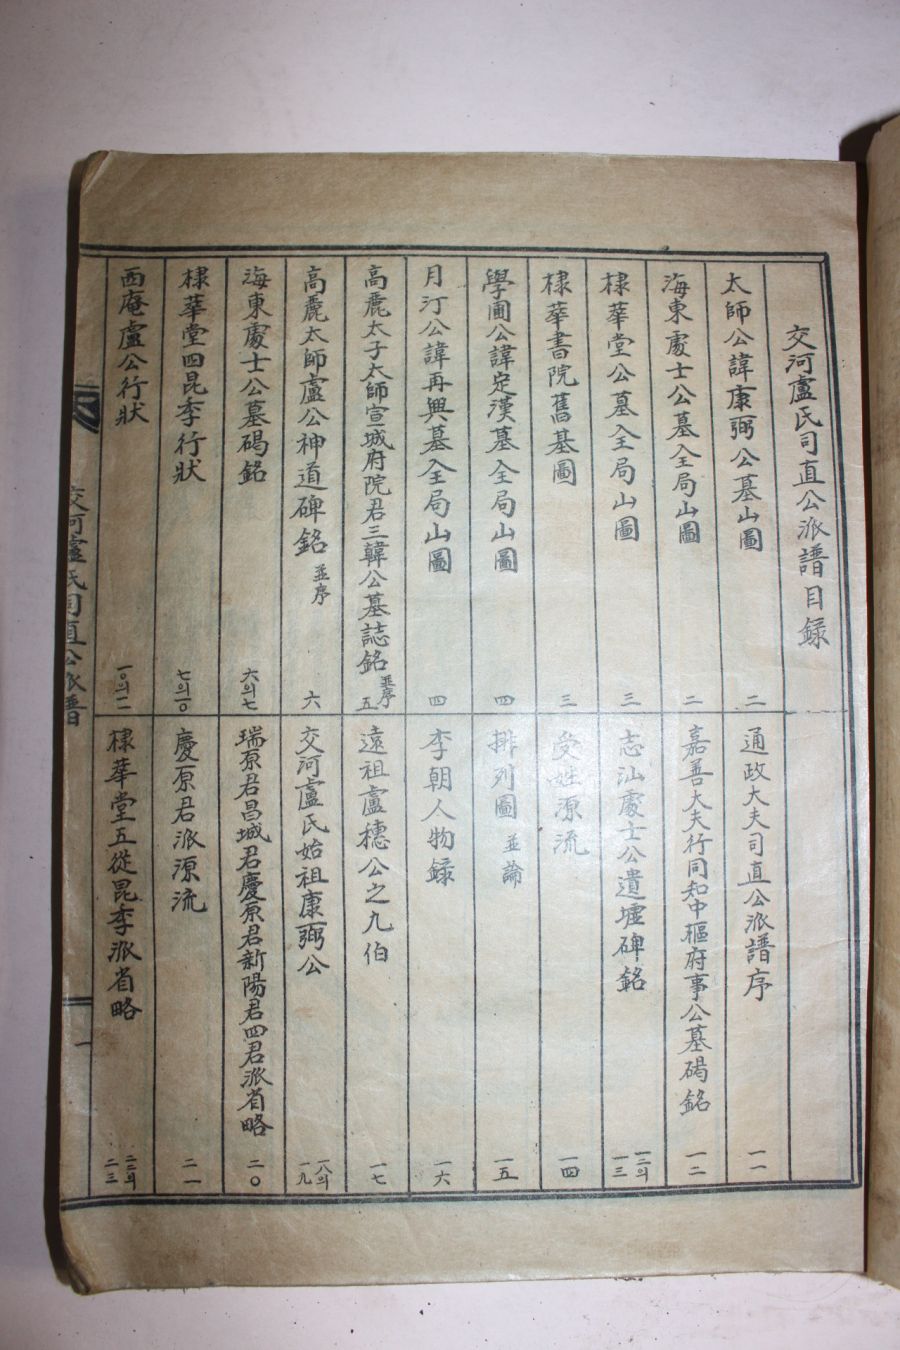 交河盧氏司直公派譜目録
太師公諱康弼公墓山圖 二
海東處士公墓全局山圖 二
棣華堂公墓全局山圖 三
棣華書院舊基圖 三
學圃公諱定漢墓全局山圖 四
月汀公諱再興墓全局山圖 四
高麗太子太師宣城府院君三韓公墓誌銘 並序 五
高麗太師盧公神道碑銘 並序 六
海東處士公墓碣銘 六의七
棣華堂四昆季行狀 七의一〇
西庵盧公行狀 一〇의一一
通政大夫司直公派譜序 一一
嘉善大夫行同知中樞府事公墓碣銘 一二
志汕處士公遺墟碑銘 一二의一三
受姓源流 一四
排列圖 並論 一五
李朝人物録 一六
遠祖盧穗公之九伯 一七
交河盧氏始祖康弼公 一八의一九
瑞原君昌城君慶原君新陽君四君派省略 二〇
慶原君派源流 二一
棣華堂五從昆季派省略 二二의二三
交河盧氏司直公派譜
一